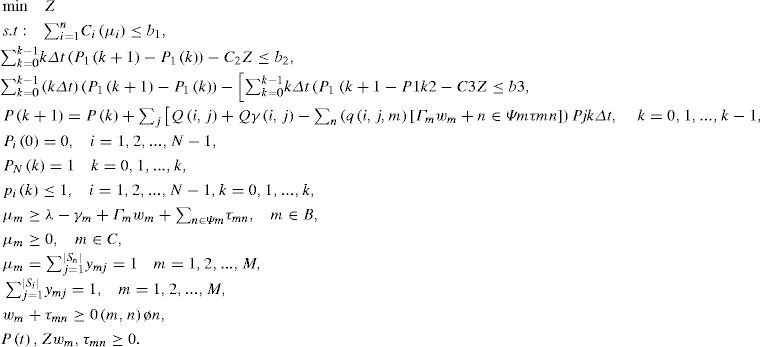 min Z
s.t : ∑_{i=1}^{n} C_i (μ_i) ≤ b_1,
∑_{k=0}^{k−1} kΔt (P_1 (k + 1) − P_1 (k)) − C_2 Z ≤ b_2,
∑_{k=0}^{k−1} (kΔt) (P_1 (k + 1) − P_1 (k)) − [∑_{k=0}^{k−1} kΔt (P_1 (k + 1 − P1k2 − C3Z ≤ b3,
P (k + 1) = P (k) + ∑_j [Q (i, j) + Qγ (i, j) − ∑_n (q (i, j, m) [Γ_m w_m + n ∈ Ψmτmn]) Pjk Δt, k = 0, 1, ..., k − 1,
P_i (0) = 0, i = 1, 2, ..., N − 1,
P_N (k) = 1 k = 0, 1, ..., k,
p_i (k) ≤ 1, i = 1, 2, ..., N − 1, k = 0, 1, ..., k,
μ_m ≥ λ − γ_m + Γ_m w_m + ∑_{n∈Ψm} τ_{mn}, m ∈ B,
μ_m ≥ 0, m ∈ C,
μ_m = ∑_{j=1}^{|S_n|} y_{mj} = 1 m = 1, 2, ..., M,
∑_{j=1}^{|S_i|} y_{mj} = 1, m = 1, 2, ..., M,
w_m + τ_{mn} ≥ 0 (m, n) øn,
P (t) , Zw_m, τ_{mn} ≥ 0.